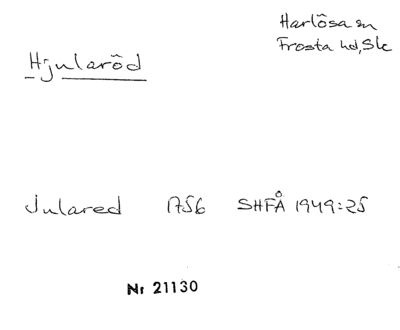 Harlösa sn
Frosta hd, Sk
Hjularöd
Julared 1756 SHFÅ 1949:25
Nr 21130